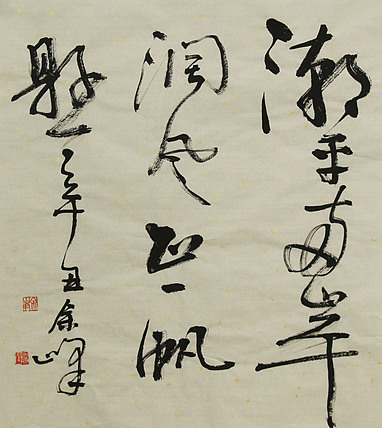 潮平两岸
阔风正一帆
悬 辛丑余峰